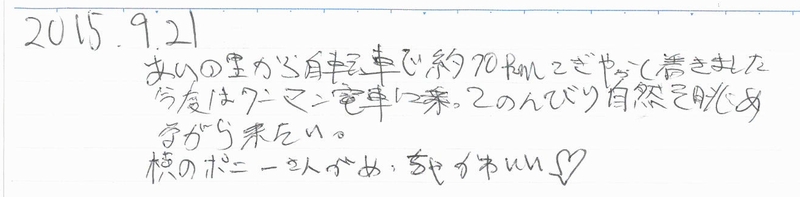 2015.9.21
あいの里から自転車で約70kmこぎやっと着きました
今度はワンマン電車に乗ってのんびり自然を眺め
ながら来たい。
横のポニーさんがめっちゃかわいい♡